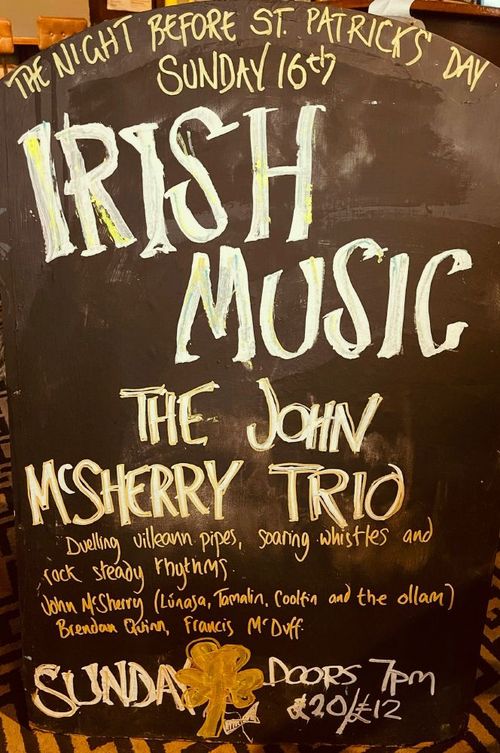 THE NIGHT BEFORE ST. PATRICK'S DAY
SUNDAY 16th
IRISH
MUSIC
THE JOHN
McSHERRY TRIO
Duelling uilleann pipes, soaring whistles and
rock steady rhythms.
John McSherry (Lúnasa, Tamalin, Coolfin and the ollam)
Brendan Quinn, Francis McDuff.
SUNDAY DOORS 7pm
£20/£12